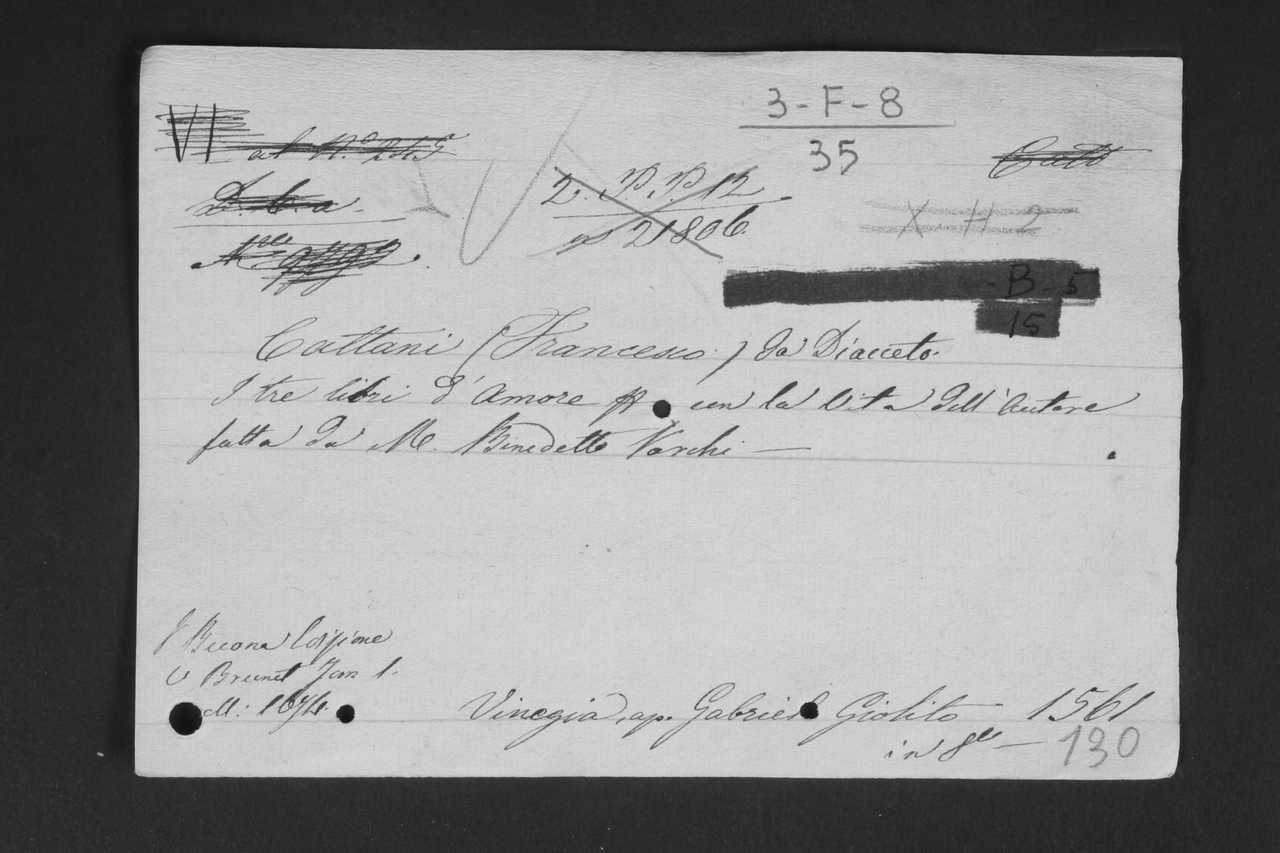 3-F-8
35
VI al N.º
Catt
2. P. P. 12
21806
X-H-2
B-5
15
Cattani (Francesco) da Diacceto.
I tre libri d'amore con la Vita dell'Autore
fatta da M. Benedetto Varchi —
Buona Edizione
V Brunet Tom 1.
Vinegia, ap. Gabriel Giolito 1561
in 8º — 130